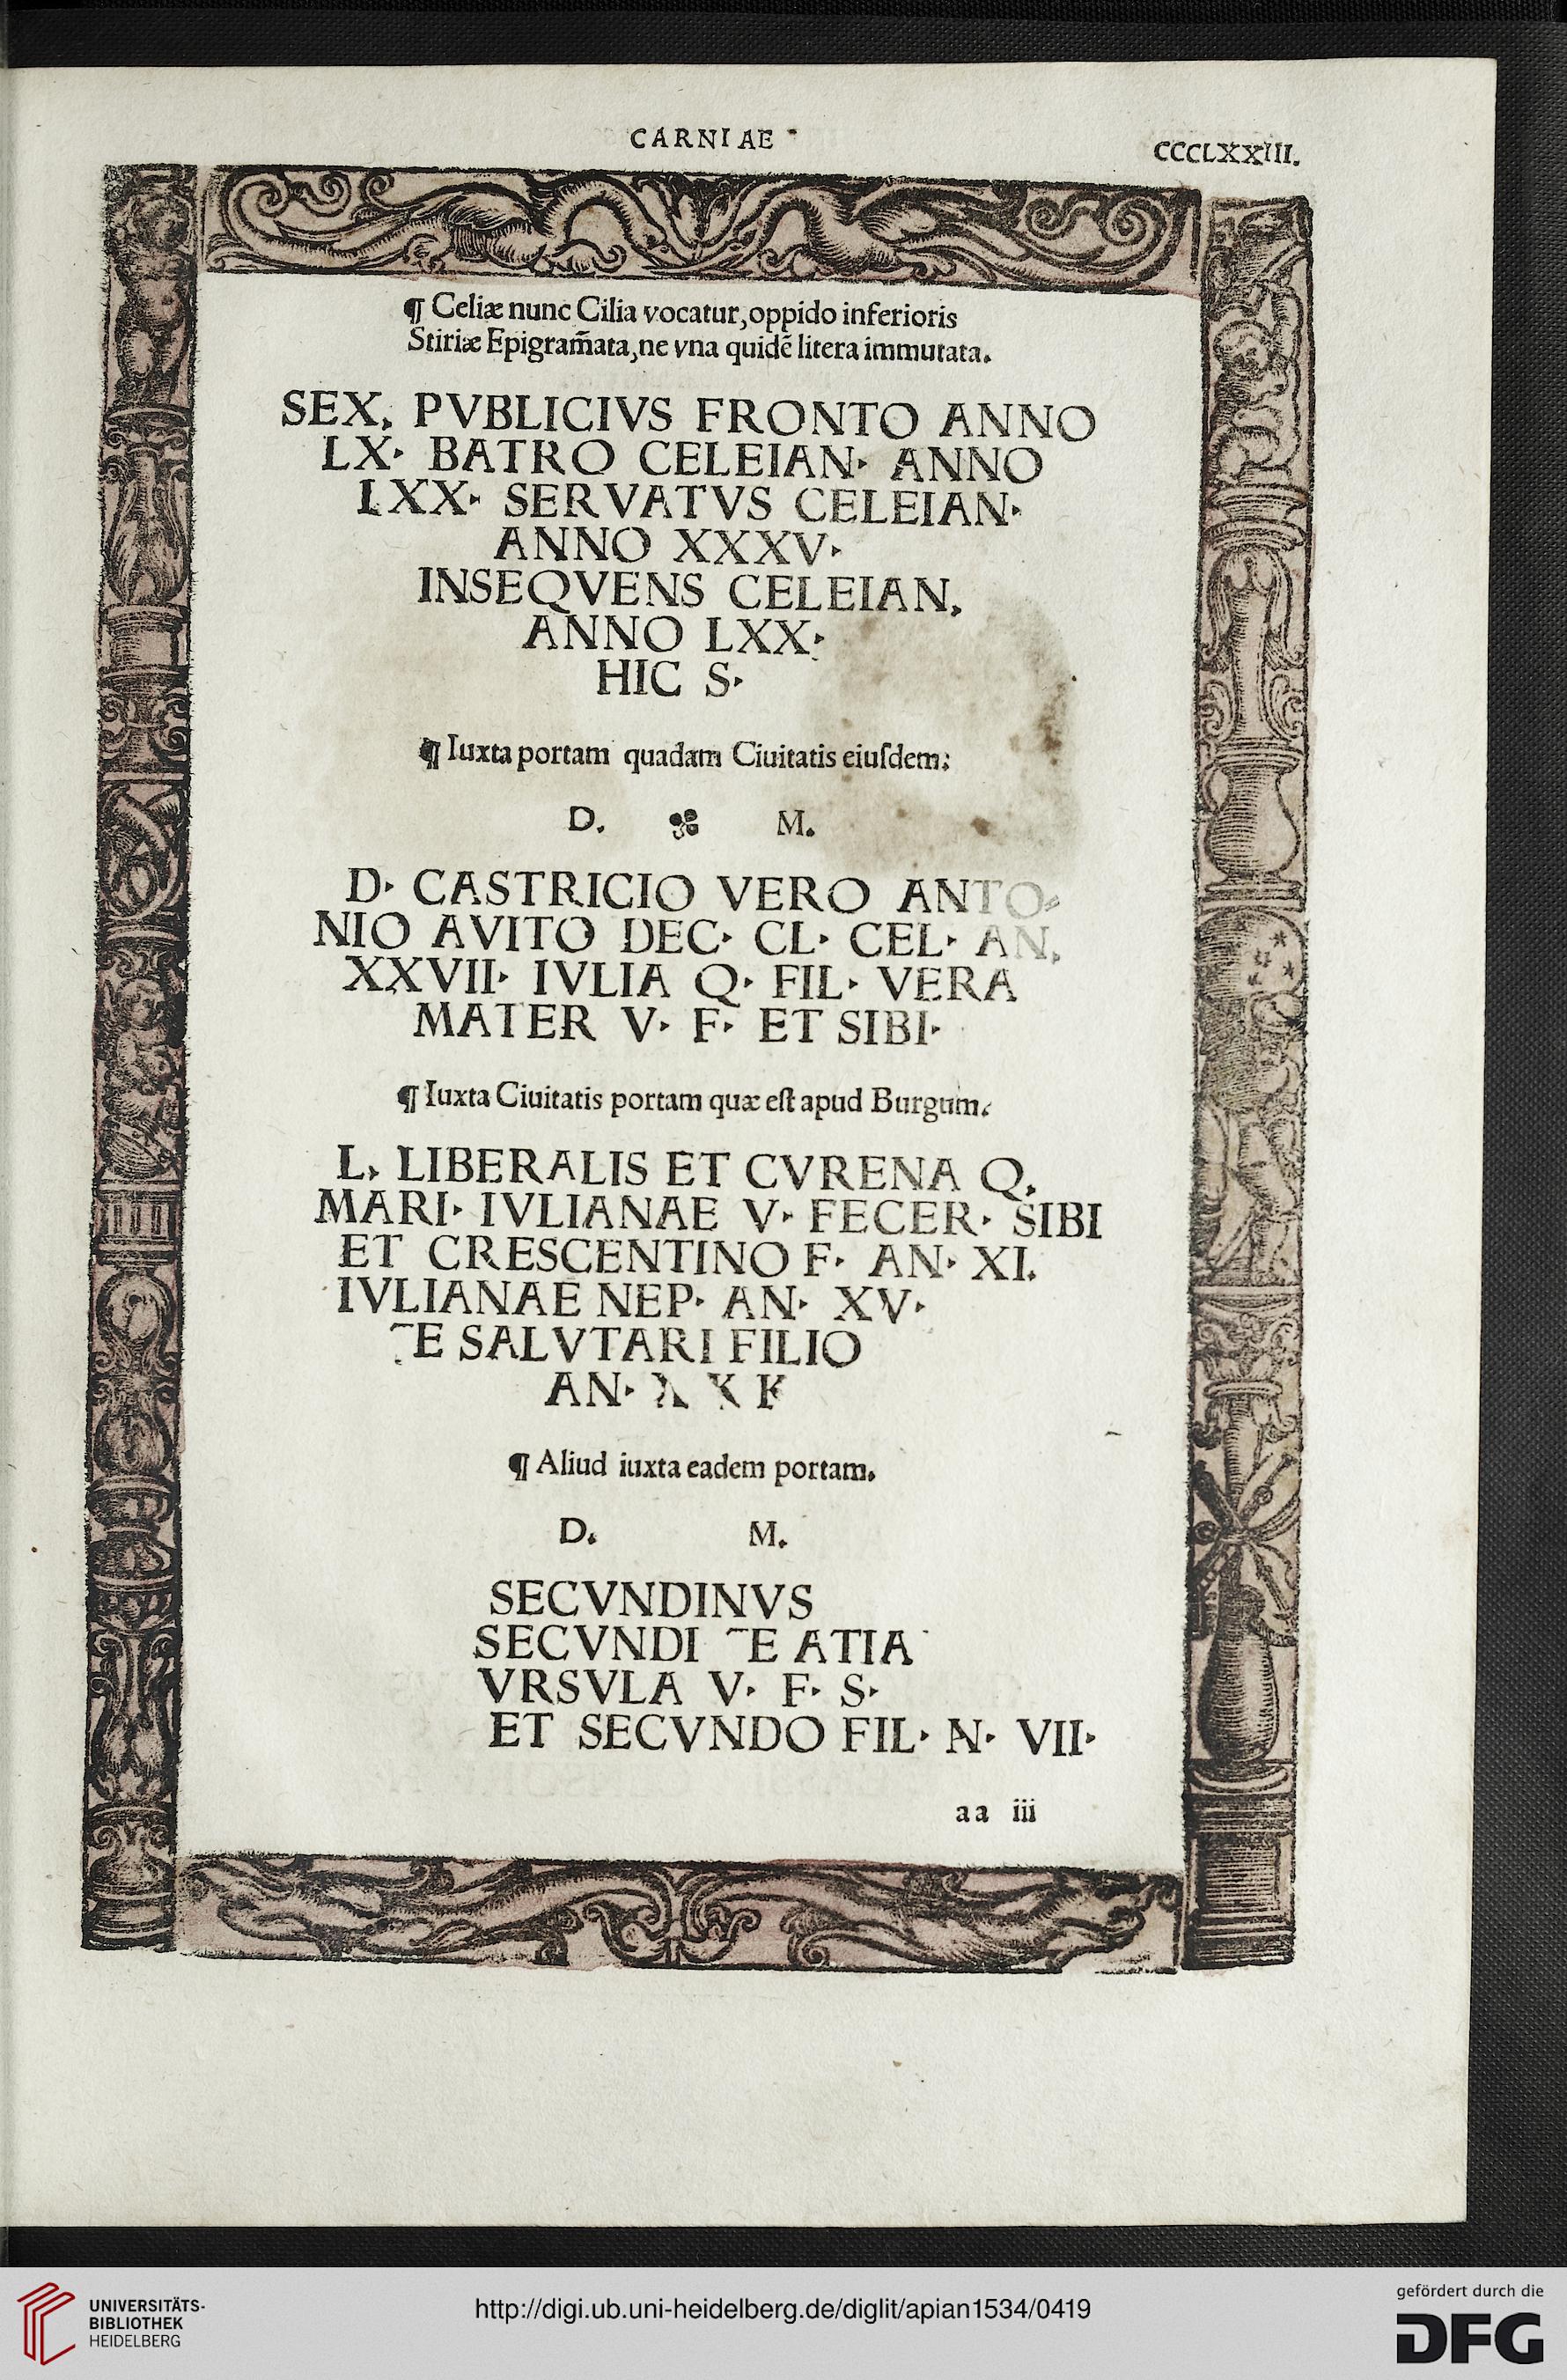 CARNIAE
CCCLXXIII.
¶ Celiæ nunc Cilia vocatur, oppido inferioris
Stiriæ Epigram̃ata, ne vna quidẽ litera immutata.
SEX. PVBLICIVS FRONTO ANNO
LX· BATRO CELEIAN· ANNO
LXX· SERVATVS CELEIAN·
ANNO XXXV·
INSEQVENS CELEIAN.
ANNO LXX·
HIC S·
¶ Iuxta portam quadam Ciuitatis eiuſdem:
D. M.
D· CASTRICIO VERO ANTO⸗
NIO AVITO DEC· CL· CEL· AN.
XXVII· IVLIA Q· FIL· VERA
MATER V· F· ET SIBI·
¶ Iuxta Ciuitatis portam quæ eſt apud Burgum.
L. LIBERALIS ET CVRENA Q.
MARI· IVLIANAE V· FECER· SIBI
ET CRESCENTINO F· AN· XI.
IVLIANAE NEP· AN· XV·
E SALVTARI FILIO
AN·
¶ Aliud iuxta eadem portam.
D. M.
SECVNDINVS
SECVNDI E ATIA
VRSVLA V· F· S·
ET SECVNDO FIL· N· VII·
aa iii
UNIVERSITÄTS-
BIBLIOTHEK
HEIDELBERG
http://digi.ub.uni-heidelberg.de/diglit/apian1534/0419
gefördert durch die
DFG